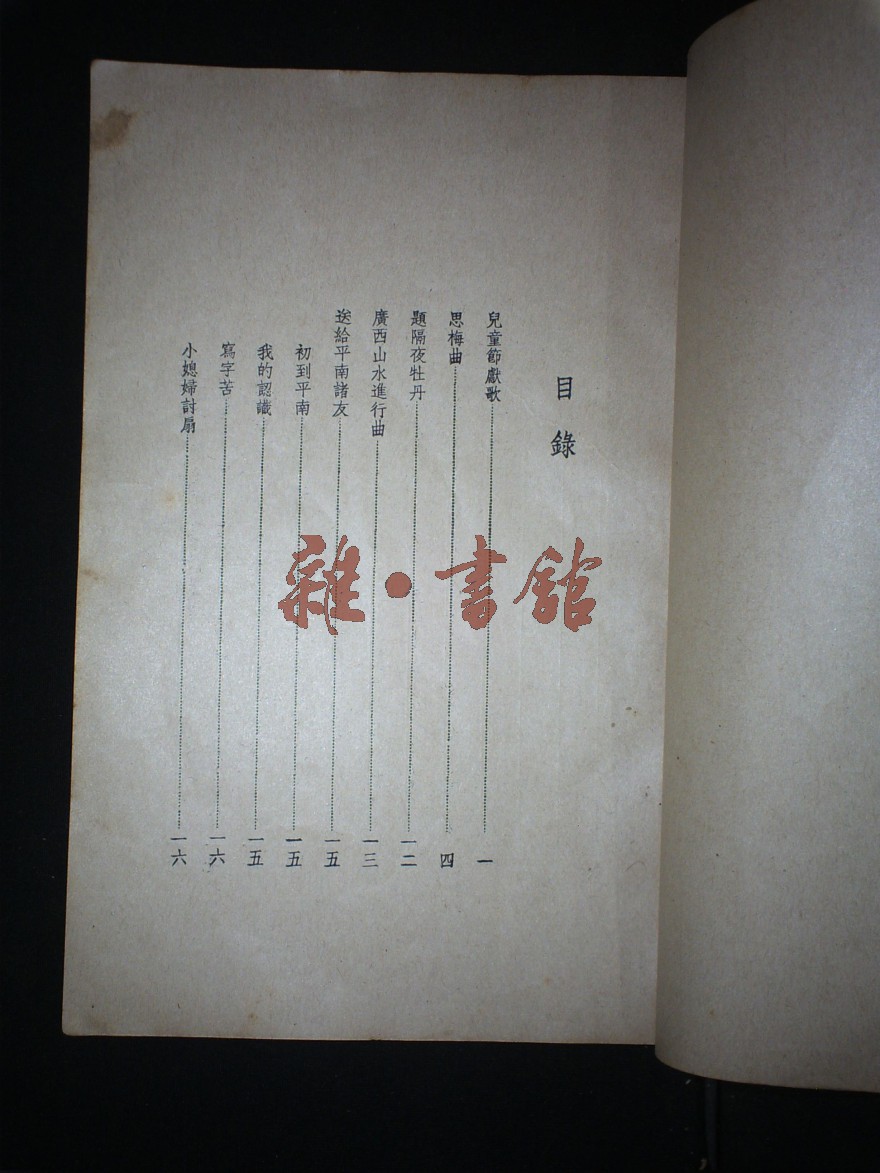 目錄
兒童節獻歌……一
思梅曲……四
題隔夜牡丹……一二
廣西山水進行曲……一三
送給平南諸友……一五
初到平南……一五
我的認識……一五
寫字苦……一六
小媳婦討扇……一六
雜·書館